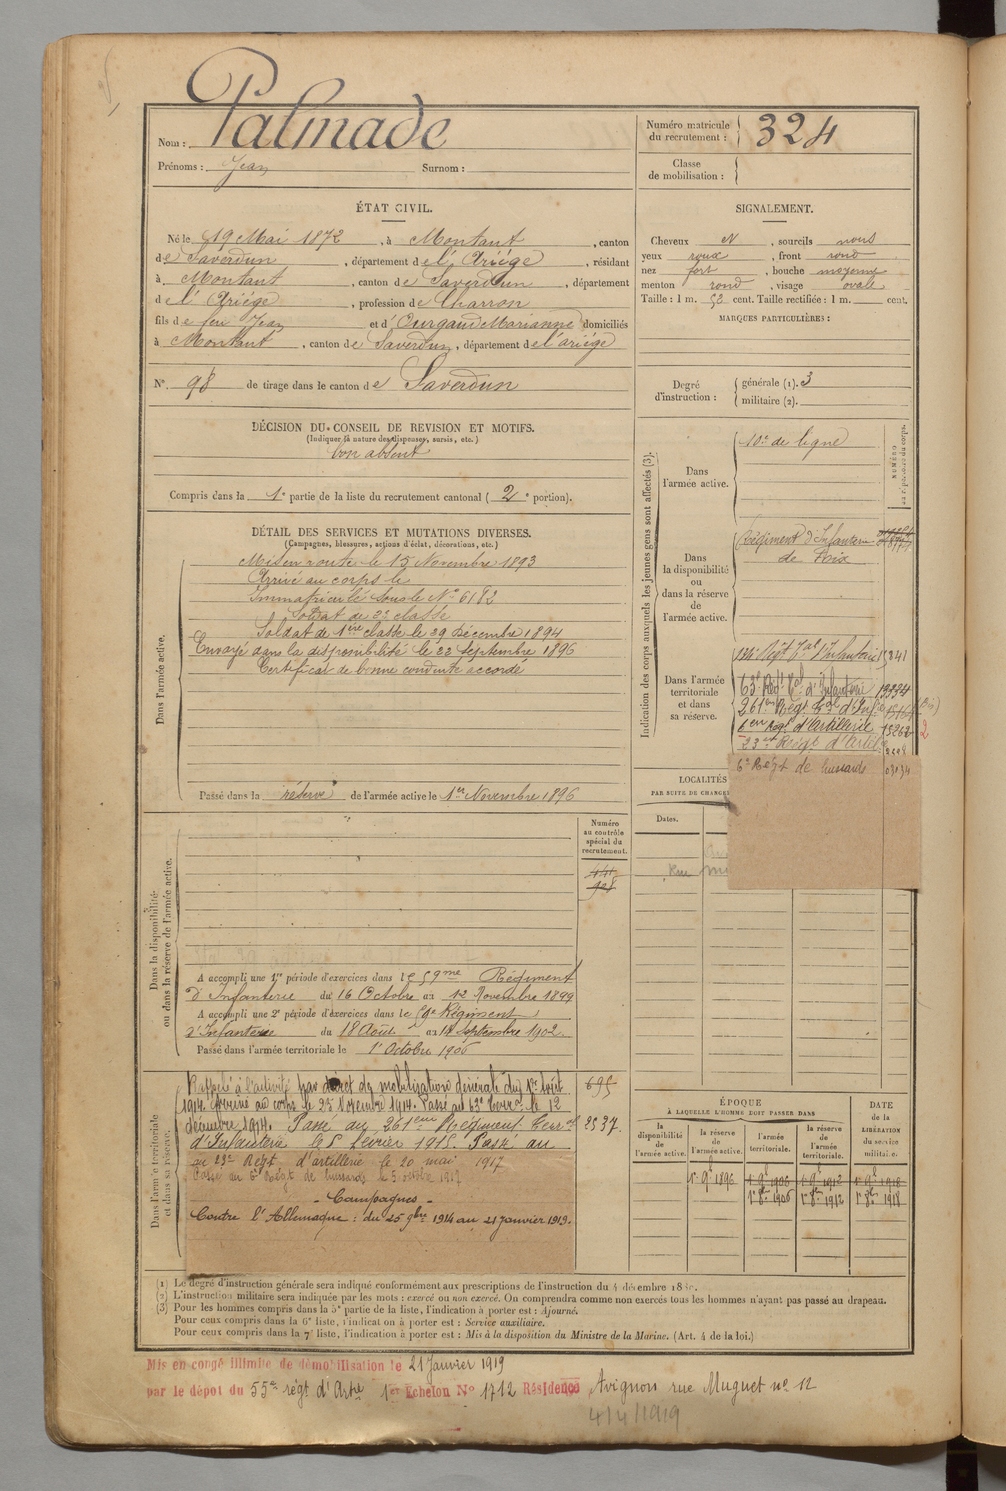 Nom : Palmade
Prénoms : Jean Surnom :
Numéro matricule du recrutement : 324
Classe de mobilisation :
ÉTAT CIVIL.
Né le 19 Mai 1872, à Montaut, canton
de Saverdun, département de l'Ariége, résidant
à Montaut, canton de Saverdun, département
de l'Ariége, profession de Charron
fils de feu Jean et d' Ourgaud Marianne domiciliés
à Montaut, canton de Saverdun, département de l'ariége
N° 98 de tirage dans le canton de Saverdun
SIGNALEMENT.
Cheveux N, sourcils noirs
yeux roux, front rond
nez fort, bouche moyenne
menton rond, visage ovale
Taille : 1 m. 52 cent. Taille rectifiée : 1 m. cent.
MARQUES PARTICULIÈRES :
Degré d'instruction : générale (1). 3
militaire (2).
DÉCISION DU CONSEIL DE REVISION ET MOTIFS.
(Indiquer la nature des dispenses, sursis, etc.)
bon absent
Compris dans la 1e partie de la liste du recrutement cantonal (2e portion).
DÉTAIL DES SERVICES ET MUTATIONS DIVERSES.
(Campagnes, blessures, actions d'éclat, décorations, etc.)
Dans l'armée active.
Mis en route le 15 Novembre 1893
Arrivé au corps le
Immatriculé sous le N° 6182
Soldat de 2e classe
Soldat de 1ère classe le 29 décembre 1894
Envoyé dans la disponibilité le 22 Septembre 1896
Certificat de bonne conduite accordé
Passé dans la réserve de l'armée active le 1er Novembre 1896
Indication des corps auxquels les jeunes gens sont affectés (3).
Dans l'armée active.
10e de ligne
NUMÉRO
Dans la disponibilité ou dans la réserve de l'armée active.
Régiment d'Infanterie
de Foix
Dans l'armée territoriale et dans sa réserve.
134e Régt Tal d'Infanterie 15841
63e Régt Tal d'Infanterie
261e Régt Tal d'Infie
Régt d'Artillerie 15262 2
23e Régt d'Artie
6e Régt de hussards 03134
LOCALITÉS
PAR SUITE DE CHANGE
Dates.
Rue
Numéro au contrôle spécial du recrutement.
Dans la disponibilité ou dans la réserve de l'armée active.
A accompli une 1re période d'exercices dans le 59me Régiment
d'Infanterie du 16 Octobre au 12 Novembre 1899
A accompli une 2e période d'exercices dans le Régiment
d'Infanterie du 18 Août au 14 septembre 1902.
Passé dans l'armée territoriale le 1er Octobre 1906
Dans l'armée territoriale et dans sa réserve.
Rappelé à l'activité par décret de mobilisation générale du 1er Août 695
1914. Arrivé au corps le 25 Novembre 1914. Passé au 63e Terral le 12
décembre 1914. Passé au 261eme Régiment Terral 2537.
d'Infanterie le 5 février 1915. Passé au
au 23e Régt d'artillerie le 20 mai 1917
Passé au 6e Régt de hussards le 5 octobre 1917
- Campagnes -
Contre l'Allemagne : du 25 9bre 1914 au 21 janvier 1919.
ÉPOQUE
À LAQUELLE L'HOMME DOIT PASSER DANS
la disponibilité de l'armée active.
la réserve de l'armée active.
l'armée territoriale.
la réserve de l'armée territoriale.
DATE de la LIBÉRATION du service militaire.
1er 9b 1896
1er 8bre 1906 1er 8bre 1912 1er 8bre 1918
(1) Le degré d'instruction générale sera indiqué conformément aux prescriptions de l'instruction du 4 décembre 18
(2) L'instruction militaire sera indiquée par les mots : exercé ou non exercé. On comprendra comme non exercés tous les hommes n'ayant pas passé au drapeau.
(3) Pour les hommes compris dans la 5e partie de la liste, l'indication à porter est : Ajourné.
Pour ceux compris dans la 6e liste, l'indication à porter est : Service auxiliaire.
Pour ceux compris dans la 7e liste, l'indication à porter est : Mis à la disposition du Ministre de la Marine. (Art. 4 de la loi.)
Mis en congé illimité de démobilisation le 21 Janvier 1919
par le dépot du 55e régt d'Artie 1er Echelon N° 1712 Résidence Avignon rue Muguet n° 12
4/4/1919